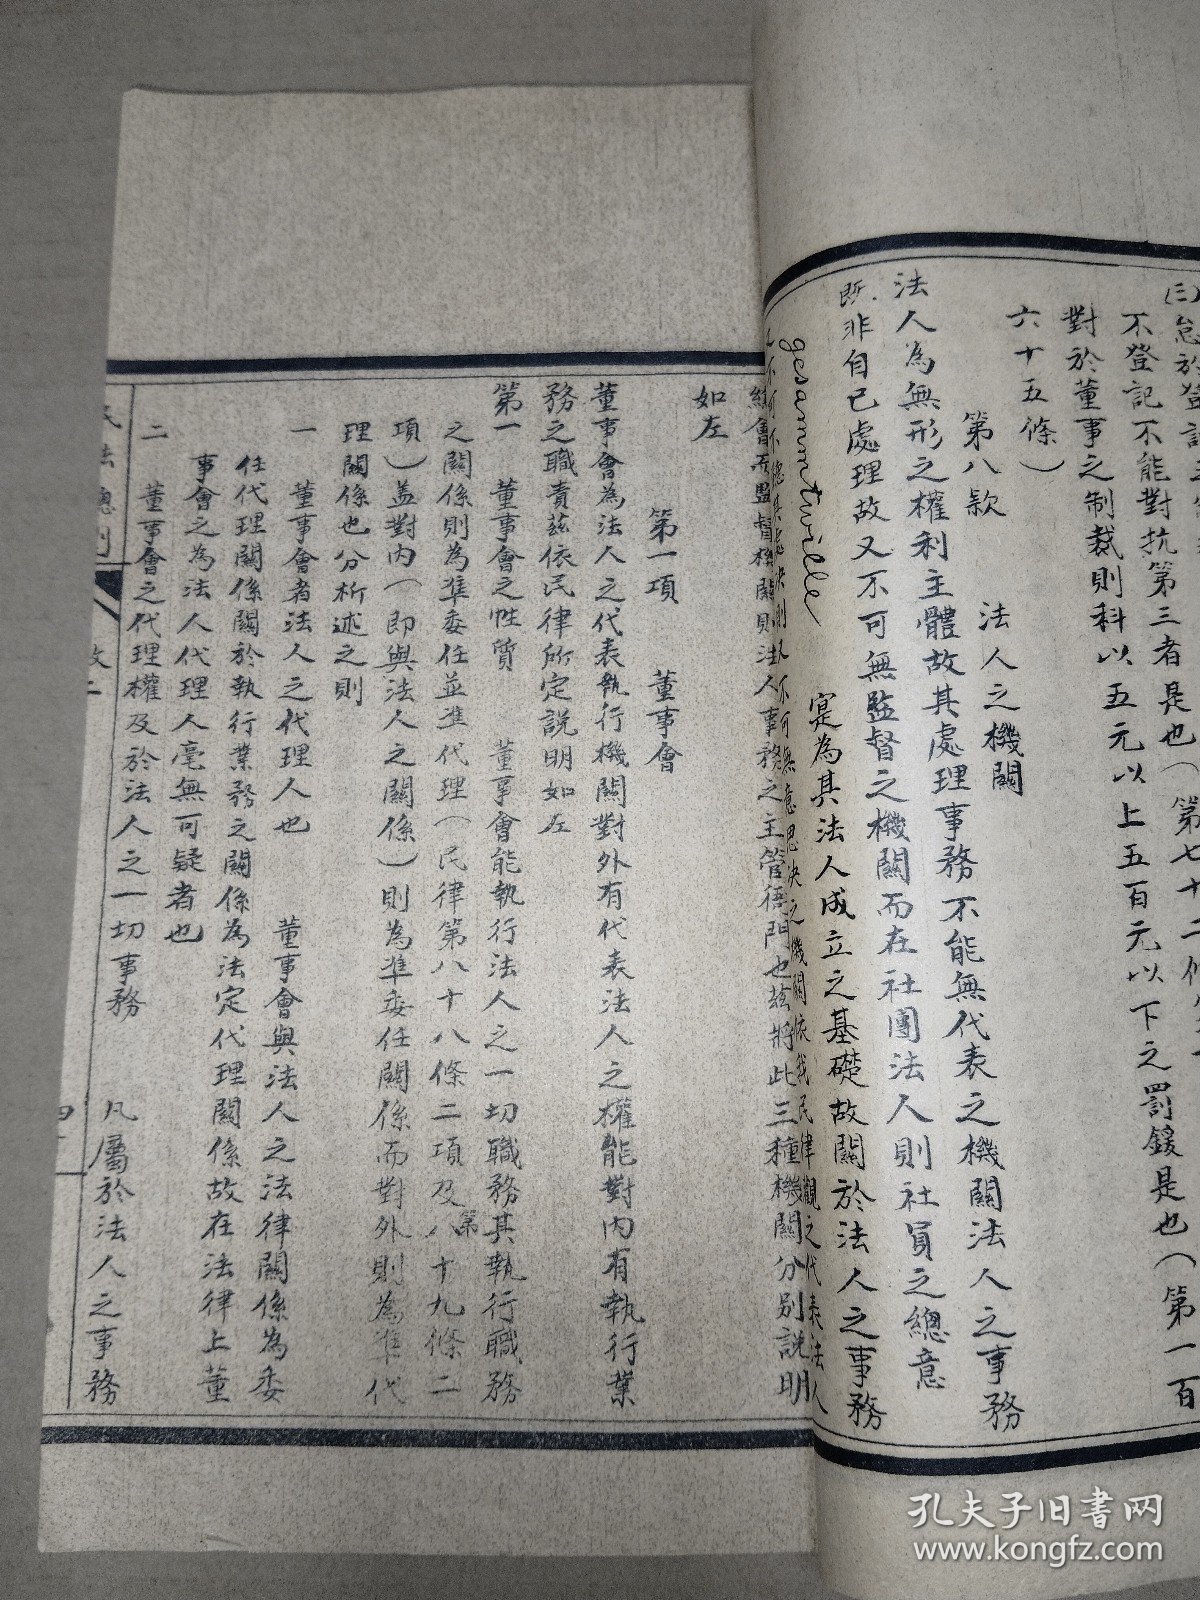 (三)怠於登記
不登記不能對抗第三者是也(第七十二條
對於董事之制裁則科以五元以上五百元以下之罰鍰是也(第一百
六十五條)
第八款 法人之機關
法人為無形之權利主體故其處理事務不能無代表之機關法人之事務
既非自己處理故又不可無監督之機關而在社團法人則社員之總意
gesammtwille 寔為其法人成立之基礎故關於法人之事務
不可無意思決之機關依我民律觀之代表法人
總會而監督機關則法人事務之主管衙門也茲將此三種機關分別說明
如左
第一項 董事會
董事會為法人之代表執行機關對外有代表法人之權能對內有執行業
務之職責茲依民律所定說明如左
第一 董事會之性質 董事會能執行法人之一切職務其執行職務
之關係則為準委任並準代理(民律第八十八條二項及第八十九條二
項)蓋對內(即與法人之關係)則為準委任關係而對外則為準代
理關係也分析述之則
一 董事會者法人之代理人也 董事會與法人之法律關係為委
任代理關係關於執行業務之關係為法定代理關係故在法律上董
事會之為法人代理人毫無可疑者也
二 董事會之代理權及於法人之一切事務 凡屬於法人之事務
民法總則
孔夫子旧书网
www.kongfz.com